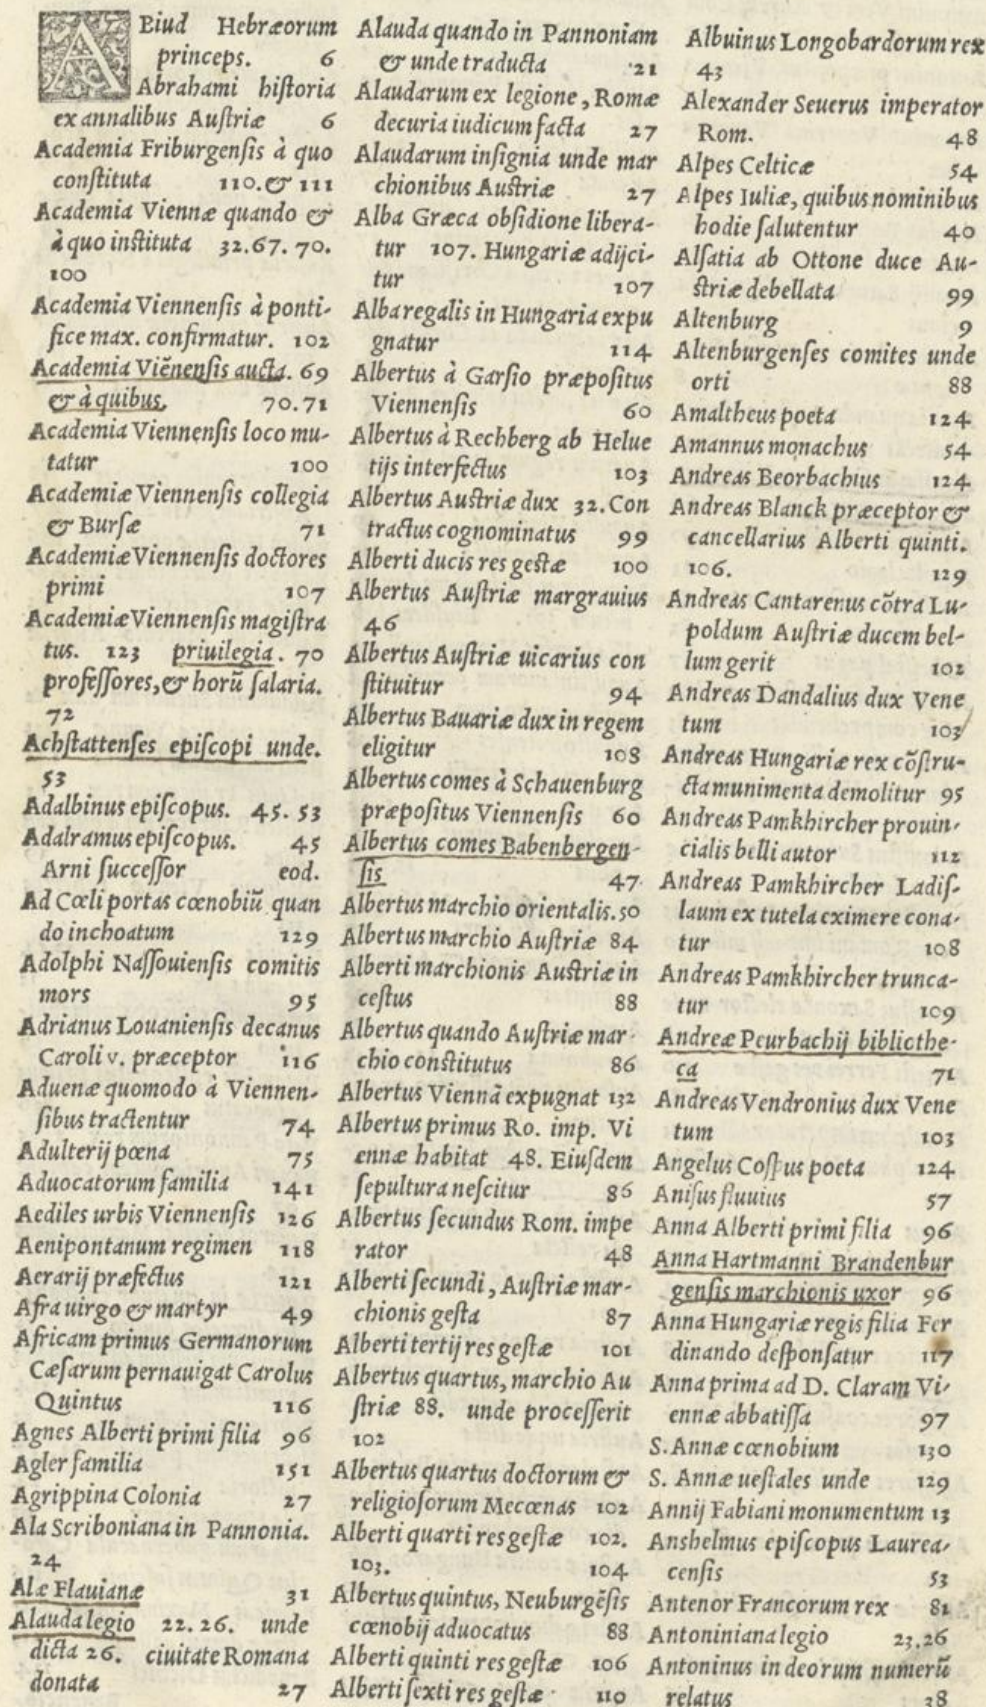 ABiud Hebræorum
princeps. 6
Abrahami hiſtoria
ex annalibus Auſtriæ 6
Academia Friburgenſis à quo
conſtituta 110. & 111
Academia Viennæ quando &
à quo inſtituta 32.67.70.
100
Academia Viennenſis à ponti-
fice max. confirmatur. 102
Academia Viẽnenſis aucta. 69
& à quibus. 70.71
Academia Viennenſis loco mu-
tatur 100
Academiæ Viennenſis collegia
& Burſæ 71
Academiæ Viennenſis doctores
primi 107
Academiæ Viennenſis magiſtra
tus. 123 priuilegia. 70
profeſſores, & horũ ſalaria.
72
Achſtattenſes epiſcopi unde.
53
Adalbinus epiſcopus. 45. 53
Adalramus epiſcopus. 45
Arni ſucceſſor eod.
Ad Cœli portas cœnobiũ quan
do inchoatum 129
Adolphi Naſſouienſis comitis
mors 95
Adrianus Louanienſis decanus
Caroli v. præceptor 116
Aduenæ quomodo à Viennen-
ſibus tractentur 74
Adulterij pœna 75
Aduocatorum familia 141
Aediles urbis Viennenſis 126
Aenipontanum regimen 118
Aerarij præfectus 121
Afra uirgo & martyr 49
Africam primus Germanorum
Cæſarum pernauigat Carolus
Quintus 116
Agnes Alberti primi filia 96
Agler familia 151
Agrippina Colonia 27
Ala Scriboniana in Pannonia.
24
Alæ Flauianæ 31
Alauda legio 22.26. unde
dicta 26. ciuitate Romana
donata 27
Alauda quando in Pannoniam
& unde traducta 21
Alaudarum ex legione, Romæ
decuria iudicum facta 27
Alaudarum inſignia unde mar
chionibus Auſtriæ 27
Alba Græca obſidione libera-
tur 107. Hungariæ adijci-
tur 107
Alba regalis in Hungaria expu
gnatur 114
Albertus à Garſio præpoſitus
Viennenſis 60
Albertus à Rechberg ab Helue
tijs interfectus 103
Albertus Auſtriæ dux 32. Con
tractus cognominatus 99
Alberti ducis res geſtæ 100
Albertus Auſtriæ margrauius
46
Albertus Auſtriæ uicarius con
ſtituitur 94
Albertus Bauariæ dux in regem
eligitur 108
Albertus comes à Schauenburg
præpoſitus Viennenſis 60
Albertus comes Babenbergen-
ſis 47
Albertus marchio orientalis. 50
Albertus marchio Auſtriæ 84
Alberti marchionis Auſtriæ in
ceſtus 88
Albertus quando Auſtriæ mar-
chio conſtitutus 86
Albertus Viennã expugnat 132
Albertus primus Ro. imp. Vi
ennæ habitat 48. Eiuſdem
ſepultura neſcitur 86
Albertus ſecundus Rom. impe
rator 48
Alberti ſecundi, Auſtriæ mar-
chionis geſta 87
Alberti tertij res geſtæ 101
Albertus quartus, marchio Au
ſtriæ 88. unde proceſſerit
102
Albertus quartus doctorum &
religioſorum Mecœnas 102
Alberti quarti res geſtæ 102.
103. 104
Albertus quintus, Neuburgẽſis
cœnobij aduocatus 88
Alberti quinti res geſtæ 106
Alberti ſexti res geſtæ 110
Albuinus Longobardorum rex
43
Alexander Seuerus imperator
Rom. 48
Alpes Celticæ 54
Alpes Iuliæ, quibus nominibus
hodie ſalutentur 40
Alſatia ab Ottone duce Au-
ſtriæ debellata 99
Altenburg 9
Altenburgenſes comites unde
orti 88
Amaltheus poeta 124
Amannus monachus 54
Andreas Beorbachius 124
Andreas Blanck præceptor &
cancellarius Alberti quinti.
106. 129
Andreas Cantarenus cõtra Lu-
poldum Auſtriæ ducem bel-
lum gerit 102
Andreas Dandalius dux Vene
tum 103
Andreas Hungariæ rex cõſtru-
cta munimenta demolitur 95
Andreas Pamkhircher prouin-
cialis belli autor 112
Andreas Pamkhircher Ladiſ-
laum ex tutela eximere cona-
tur 108
Andreas Pamkhircher trunca-
tur 109
Andreæ Peurbachij bibliothe-
ca 71
Andreas Vendronius dux Vene
tum 103
Angelus Coſpus poeta 124
Aniſus fluuius 57
Anna Alberti primi filia 96
Anna Hartmanni Brandenbur
genſis marchionis uxor 96
Anna Hungariæ regis filia Fer
dinando deſponſatur 117
Anna prima ad D. Claram Vi-
ennæ abbatiſſa 97
S. Annæ cœnobium 130
S. Annæ ueſtales unde 129
Annij Fabiani monumentum 13
Anshelmus epiſcopus Laurea-
cenſis 53
Antenor Francorum rex 81
Antoniniana legio 23.26
Antoninus in deorum numerũ
relatus 38